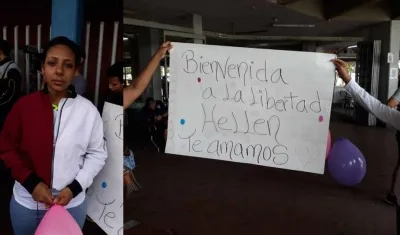 Bienvenida
a La Libertad
Hellen
Te amamos